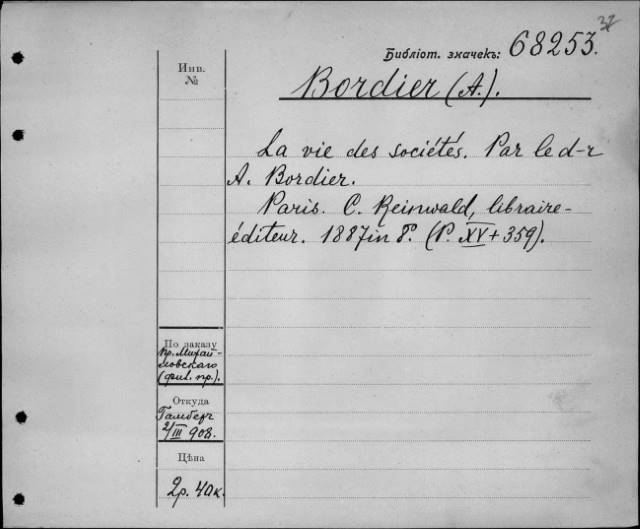 32
Библіот. значекъ: 68253.
Инв.
№
Bordier (A.).
La vie des sociétés. Par le d-r
A. Bordier.
Paris. C. Reinwald, libraire-
éditeur. 1887 in 8°. (P. XV + 359).
По заказу
пр. Михай-
ловскаго
(фил. пр.).
Откуда
Гамбер
2/III 908.
Цѣна
2р. 40к.